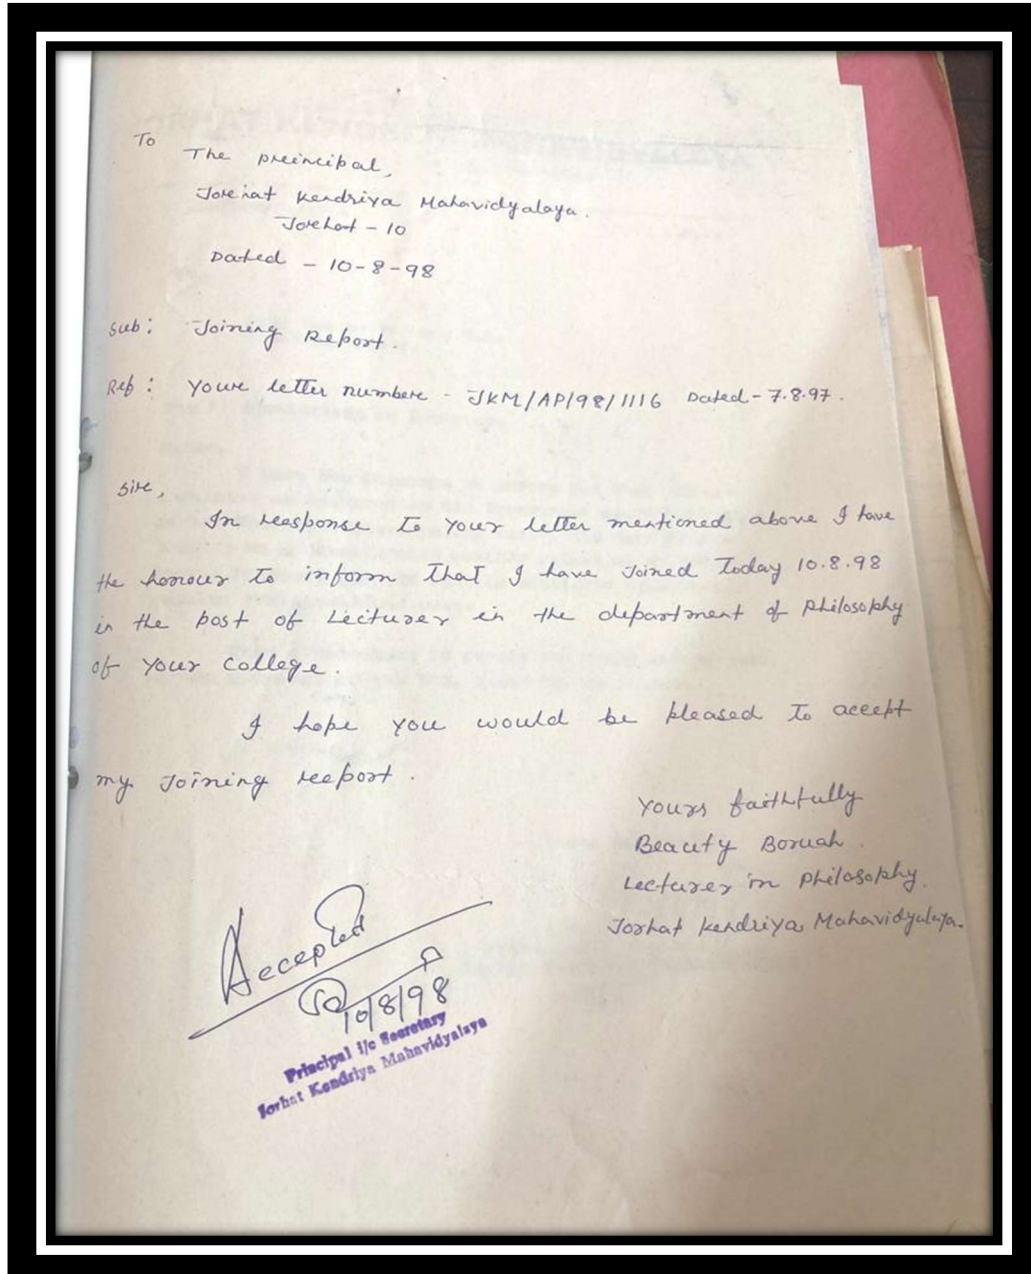 To
The preincipal,
Jorehat Kendriya Mahavidyalaya.
Jorehat - 10
Dated - 10-8-98
Sub: Joining Report.
Ref: Youre letter numbere - JKM/AP/98/1116 Dated - 7.8.97.
Sire,
In reesponse to your letter mentioned above I have
the honour to inform that I have Joined Today 10.8.98
in the post of Lecturer in the department of Philosophy
of your college.
I hope you would be pleased to accept
my Joining reeport.
Yours faithfully
Beauty Boruah.
Lecturer in Philosophy.
Jorhat Kendriya Mahavidyalaya.
Accepted
10/8/98
Principal i/c Secretary
Jorhat Kendriya Mahavidyalaya